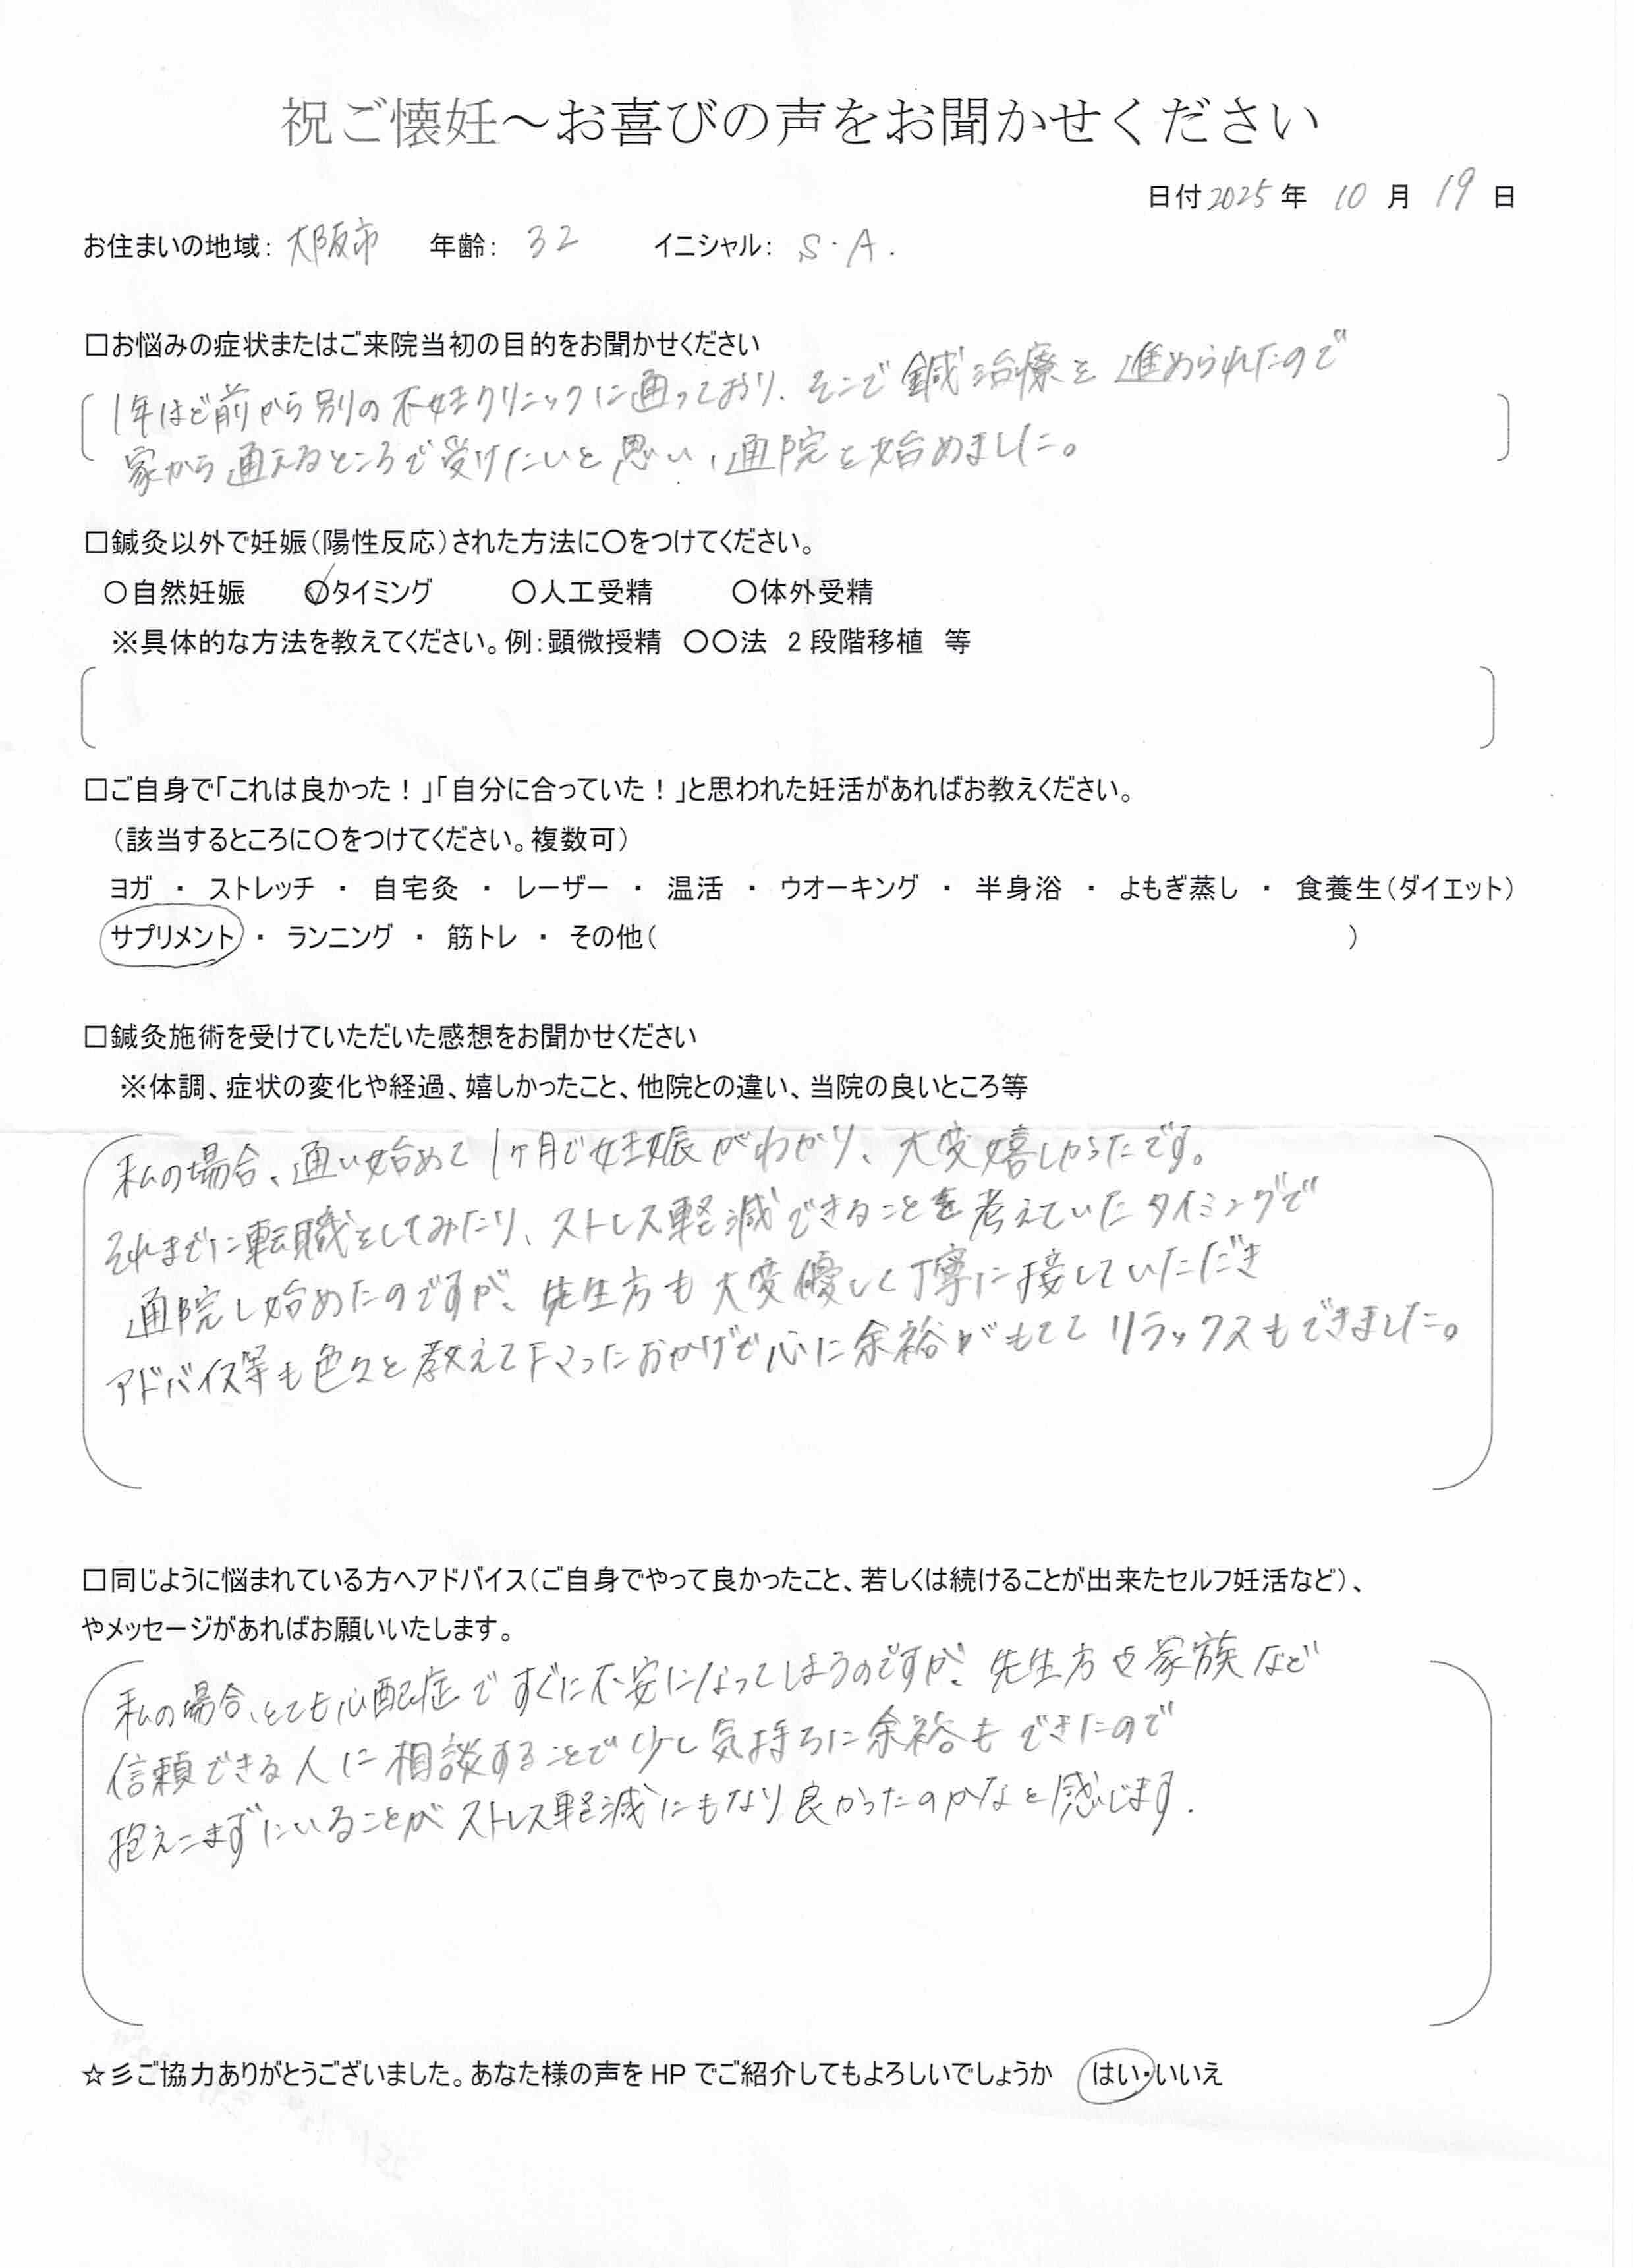 祝ご懐妊～お喜びの声をお聞かせください
日付2025年 10月 19日
お住まいの地域：大阪市 年齢：32 イニシャル：S・A.
□お悩みの症状またはご来院当初の目的をお聞かせください
1年ほど前から別の不妊クリニックに通っており、そこで鍼治療を進められたので
家から通えるところで受けたいと思い、通院を始めました。
□鍼灸以外で妊娠（陽性反応）された方法に〇をつけてください。
〇自然妊娠 〇タイミング 〇人工受精 〇体外受精
※具体的な方法を教えてください。例：顕微授精 〇〇法 2段階移植 等
□ご自身で「これは良かった！」「自分に合っていた！」と思われた妊活があればお教えください。
（該当するところに〇をつけてください。複数可）
ヨガ ・ ストレッチ ・ 自宅灸 ・ レーザー ・ 温活 ・ ウオーキング ・ 半身浴 ・ よもぎ蒸し ・ 食養生（ダイエット）
サプリメント ・ ランニング ・ 筋トレ ・ その他（ ）
□鍼灸施術を受けていただいた感想をお聞かせください
※体調、症状の変化や経過、嬉しかったこと、他院との違い、当院の良いところ等
私の場合、通い始めて1ヶ月で妊娠がわかり、大変嬉しかったです。
それまでに転職をしてみたり、ストレス軽減できることを考えていたタイミングで
通院し始めたのですが、先生方も大変優しく丁寧に接していただき
アドバイス等も色々と教えて下さったおかげで心に余裕がもててリラックスもできました。
□同じように悩まれている方へアドバイス（ご自身でやって良かったこと、若しくは続けることが出来たセルフ妊活など）、
やメッセージがあればお願いいたします。
私の場合、とても心配症ですぐに不安になってしまうのですが、先生方や家族など
信頼できる人に相談することで少し気持ちに余裕もできたので
抱えこまずにいることがストレス軽減にもなり良かったのかなと感じます.
☆彡ご協力ありがとうございました。あなた様の声をHPでご紹介してもよろしいでしょうか はい・いいえ